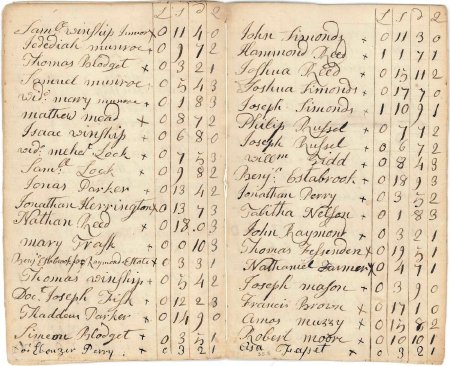 L S d 2
Sam.ll winship Junior x 0 11 4 0
Jedediah munroe x 0 9 7 2
Thomas Blodget x 0 3 2 1
Samuel munroe x 0 5 4 3
wid.o mary munroe x 0 1 8 3
mathew mead x 0 8 7 2
Isaac winship x 0 6 8 0
wid.o Lock x 0 7 5 3
Sam.ll Lock x 0 9 8 2
Jonas Parker x 0 13 4 2
Jonathan Herrington x 0 13 7 3
Nathan Reed 0 18 0 3
mary Trask x 0 0 10 3
Benj Estabrook for Raymonds Estate x 0 3 3 1
Thomas winship x 0 5 4 2
Doc.r Joseph Fisk x 0 12 2 3
Thaddeus Parker x 0 14 9 0
Simeon Blodget x 0 3 5 1
Ebenzer Perry x 0 3 2 1
L S d 2
John Simonds x 0 11 3 0
Hammond Reed x 1 1 7 1
Joshua Reed x 0 15 11 2
Joshua Simonds x 0 17 7 0
Joseph Simonds x 1 10 9 1
Philip Russel x 0 7 7 2
Joseph Russel x 0 6 7 2
x 0 8 4 3
Benj.n Estabrook x 0 18 9 3
Jonathan Perry x 0 3 5 2
Tabitha Nelson x 0 1 8 3
John Raymont x 0 3 2 1
Thomas Fessenden x 0 19 5 1
Nathaniel Farmer x 0 4 7 1
Joseph mason x 0 3 9 0
Francis Brown x 0 17 1 0
Amos muzzy x 0 15 8 2
Robert moore x 0 10 10 1
x 0 3 2 1